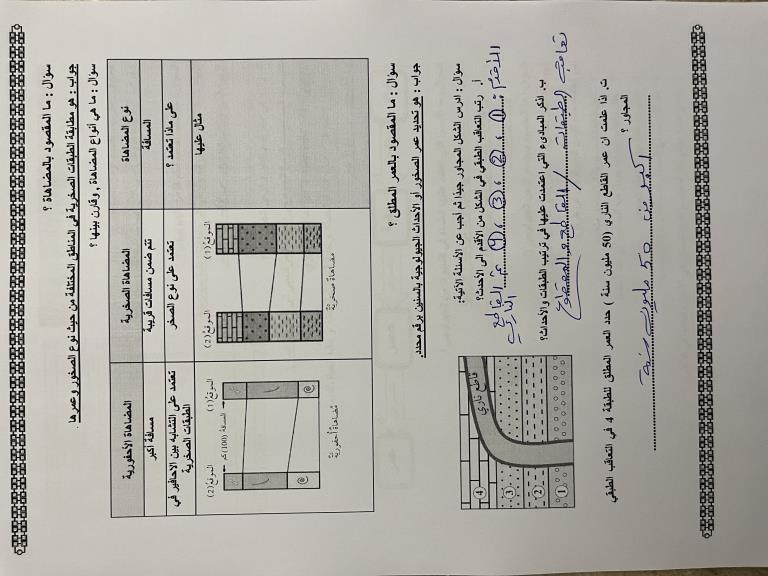 سؤال : ما المقصود بالمضاهاة ؟
جواب : هو مطابقة الطبقات الصخرية في المناطق المختلفة من حيث نوع الصخور وعمرها .
سؤال : ما هي أنواع المضاهاة , وقارن بينها ؟
نوع المضاهاة
المضاهاة الصخرية
المضاهاة الأحفورية
المسافة
تتم ضمن مسافات قريبة
مسافة أكبر
على ماذا تعتمد ؟
تعتمد على نوع الصخر
تعتمد على التشابه بين الاحافير في الطبقات الصخرية
مثال عليها
الموقع (2)
الموقع (1)
مضاهاة صخرية
الموقع (2)
المسافة (100) كم
الموقع (1)
مضاهاة أحفورية
سؤال : ما المقصود بالعمر المطلق ؟
جواب : هو تحديد عمر الصخور أو الأحداث الجيولوجية بالسنين برقم محدد.
سؤال : ادرس الشكل المجاور جيداً ثم أجب عن الأسئلة الآتية:
أ. رتب التعاقب الطبقي في الشكل من الأقدم الى الأحدث؟
الأقدم : 1 ، 2 ، 3 ، 4 ثم القاطع الناري
ب. اذكر المبادئ التي اعتمدت عليها في ترتيب الطبقات والأحداث؟
تعاقب الطبقات / القاطع والمقطوع
ت. اذا علمت ان عمر القاطع الناري (50 مليون سنة ) حدد العمر المطلق للطبقة 4 في التعاقب الطبقي
المجاور ؟
أكبر من 50 مليون سنة
قاطع ناري
4
3
2
1